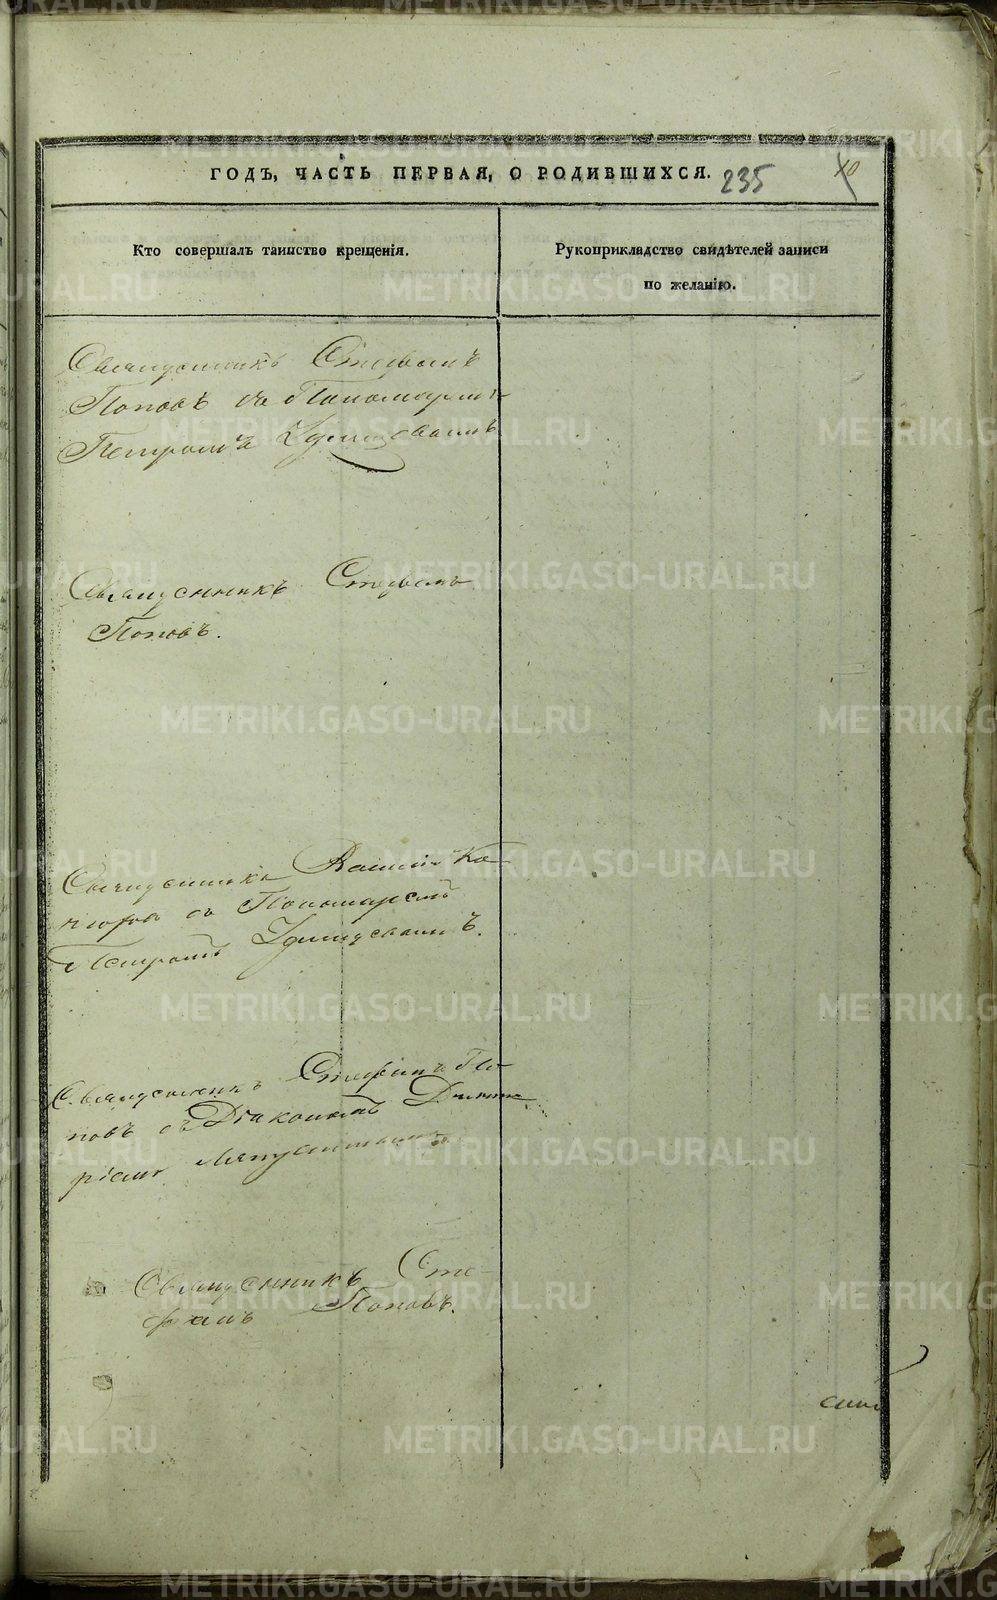 ГОДЪ, ЧАСТЬ ПЕРВАЯ, О РОДИВШИХСЯ. 235 10
Кто совершалъ таинство крещенія.
Рукоприкладство свидѣтелей записи
по желанію.
Священникъ Стефанъ
Поповъ съ Пономаремъ
Петромъ Удинцовымъ
Священникъ Стефанъ
Поповъ.
Священникъ Василій Ка
съ Пономаремъ
Петромъ Удинцовымъ.
Священникъ Стефанъ По
повъ съ Діакономъ Димит
ріемъ
Священникъ Сте-
фанъ Поповъ.
METRIKI.GASO-URAL.RU